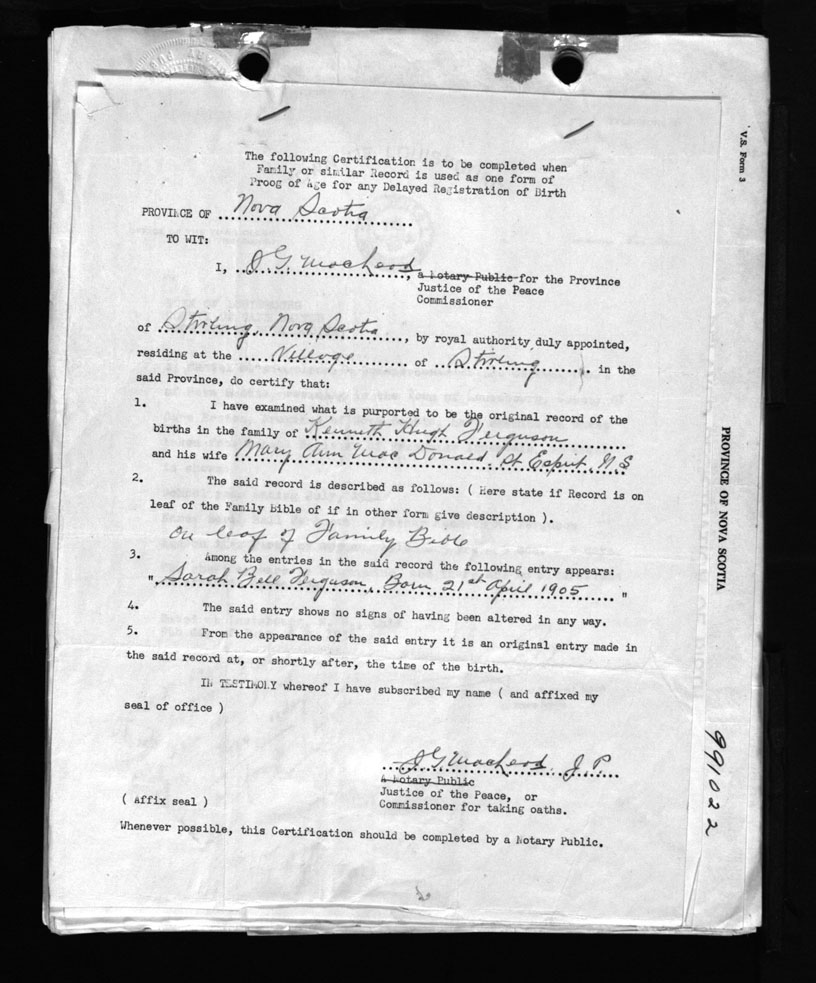 The following Certification is to be completed when
Family or similar Record is used as one form of
Proog of Age for any Delayed Registration of Birth
PROVINCE OF Nova Scotia
TO WIT:
I, D G. MacLeod, a Notary Public for the Province
Justice of the Peace
Commissioner
of Stirling, Nova Scotia, by royal authority duly appointed,
residing at the Village of Stirling in the
said Province, do certify that:
1. I have examined what is purported to be the original record of the
births in the family of Kenneth Hugh Ferguson
and his wife Mary Ann Mac Donald, St Esprit, N S
2. The said record is described as follows: ( Here state if Record is on
leaf of the Family Bible of if in other form give description ).
On leaf of Family Bible
3. Among the entries in the said record the following entry appears:
" Sarah Bell Ferguson, Born 21st April 1905 "
4. The said entry shows no signs of having been altered in any way.
5. From the appearance of the said entry it is an original entry made in
the said record at, or shortly after, the time of the birth.
IN TESTIMONY whereof I have subscribed my name ( and affixed my
seal of office )
D G MacLeod, J. P.
A Notary Public
Justice of the Peace, or
Commissioner for taking oaths.
( Affix seal )
Whenever possible, this Certification should be completed by a Notary Public.
V.S. Form 3
PROVINCE OF NOVA SCOTIA
991022